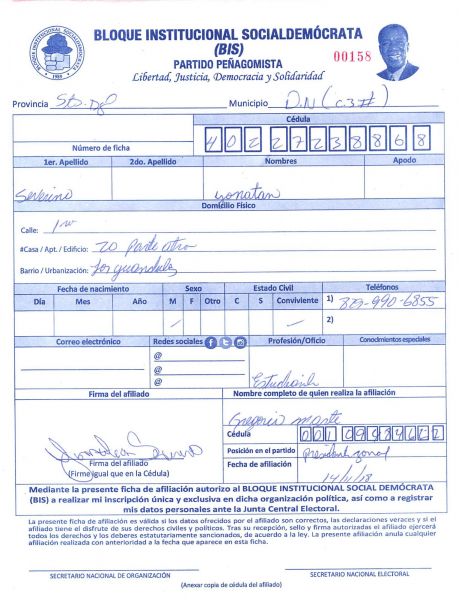 BLOQUE INSTITUCIONAL SOCIALDEMÓCRATA
(BIS)
PARTIDO PEÑAGOMISTA
00158
Libertad, Justicia, Democracia y Solidaridad
BLOQUE INSTITUCIONAL SOCIALDEMOCRATA
Provincia Sto. Dgo Municipio D.N (C.3#)
Cédula
Número de ficha 402 2723886 8
1er. Apellido 2do. Apellido Nombres Apodo
Severino yonatan
Domicilio Físico
Calle: 1ra
#Casa / Apt. / Edificio: 20 parte atras
Barrio / Urbanización: Los guandules
Fecha de nacimiento Sexo Estado Civil Teléfonos
Día Mes Año M F Otro C S Conviviente 1) 829-990-6855
/ / 2)
Correo electrónico Redes sociales Profesión/Oficio Conocimientos especiales
@
@
@ Estudiante
Firma del afiliado Nombre completo de quien realiza la afiliación
Gregorio Marte
Cédula 001
Posición en el partido presidente zonal
Firma del afiliado Fecha de afiliación
(Firme igual que en la Cédula) 14/11/18
Mediante la presente ficha de afiliación autorizo al BLOQUE INSTITUCIONAL SOCIAL DEMÓCRATA
(BIS) a realizar mi inscripción única y exclusiva en dicha organización política, así como a registrar
mis datos personales ante la Junta Central Electoral.
La presente ficha de afiliación es válida si los datos ofrecidos por el afiliado son correctos, las declaraciones veraces y si el
afiliado tiene el disfrute de sus derechos civiles y políticos. Tras su recepción, sello y firma autorizadas el afiliado ejercerá
todos los derechos y los deberes estatutariamente sancionados, de acuerdo a la ley. La presente afiliación anula cualquier
afiliación realizada con anterioridad a la fecha que aparece en esta ficha.
SECRETARIO NACIONAL DE ORGANIZACIÓN SECRETARIO NACIONAL ELECTORAL
(Anexar copia de cédula del afiliado)